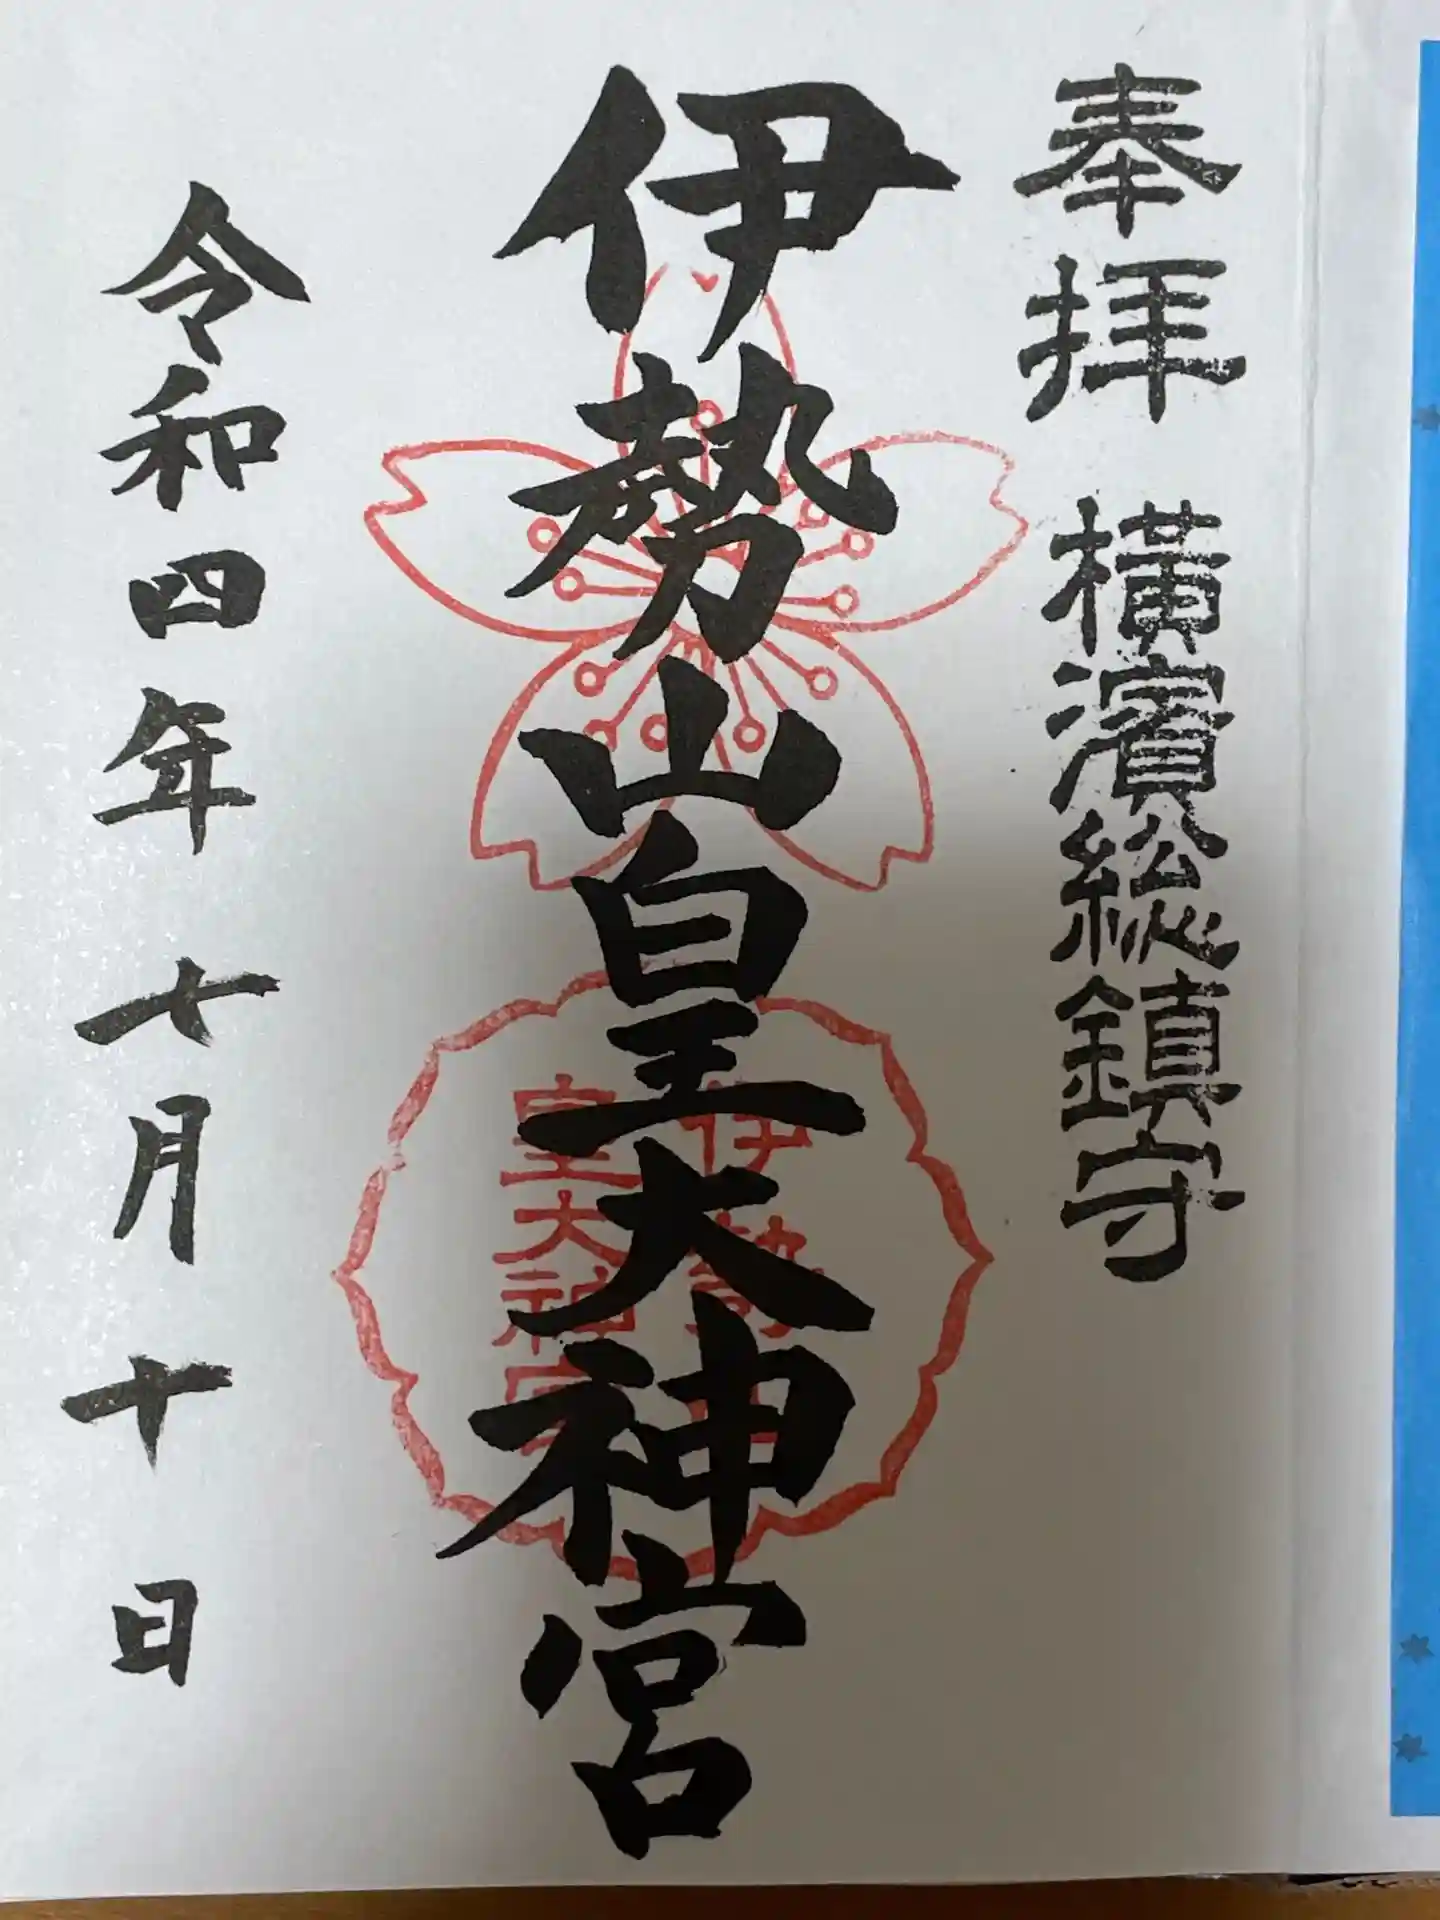 奉拝 横濱総鎮守
伊勢山皇大神宮
伊勢山
皇大神宮
令和四年七月十日